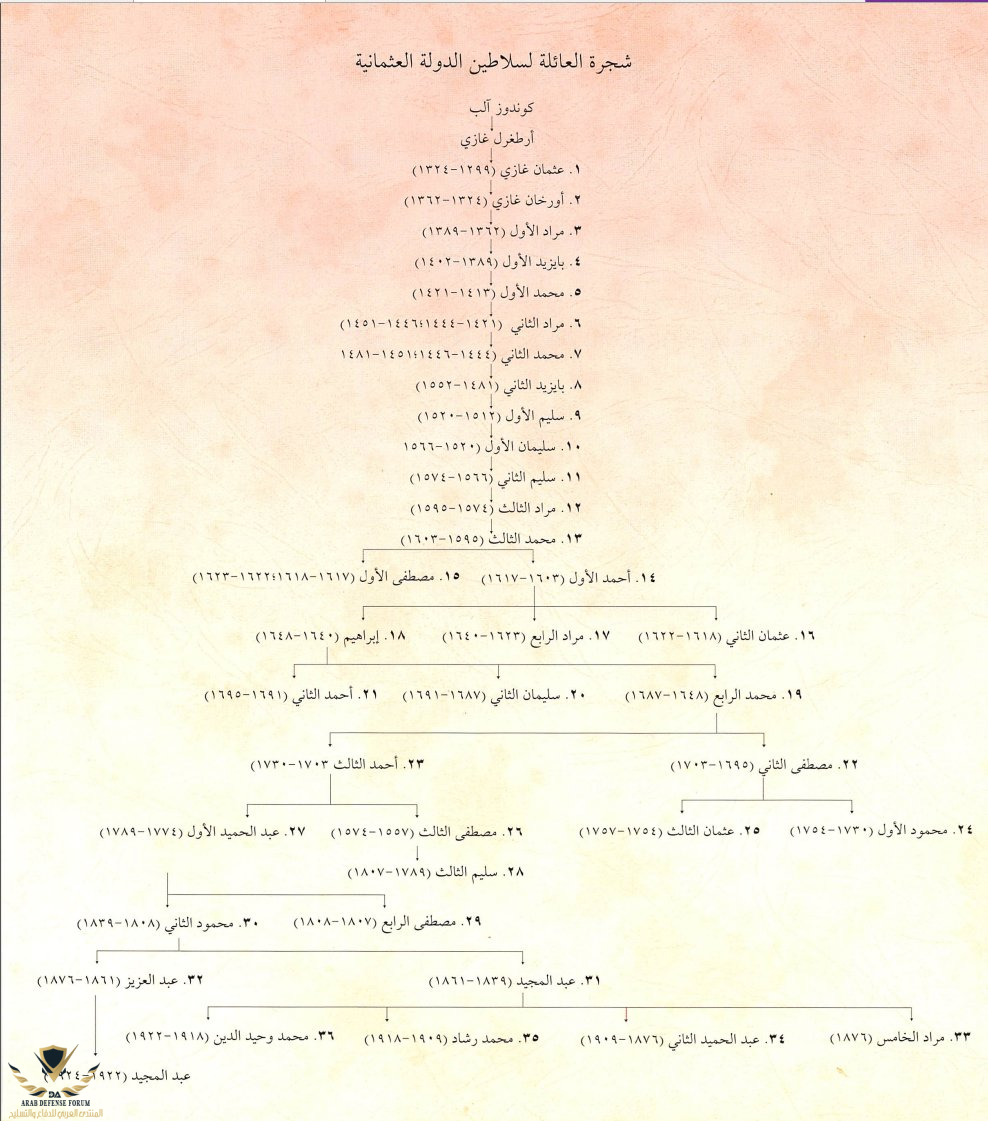 شجرة العائلة لسلاطين الدولة العثمانية
كوندوز آلب
أرطغرل غازي
١. عثمان غازي (١٢٩٩-١٣٢٤)
٢. أورخان غازي (١٣٢٤-١٣٦٢)
٣. مراد الأول (١٣٦٢-١٣٨٩)
٤. بايزيد الأول (١٣٨٩-١٤٠٢)
٥. محمد الأول (١٤١٣-١٤٢١)
٦. مراد الثاني (١٤٢١-١٤٤٤؛١٤٤٦-١٤٥١)
٧. محمد الثاني (١٤٤٤-١٤٤٦؛١٤٥١-١٤٨١
٨. بايزيد الثاني (١٤٨١-١٥٥٢)
٩. سليم الأول (١٥١٢-١٥٢٠)
١٠. سليمان الأول (١٥٢٠-١٥٦٦
١١. سليم الثاني (١٥٦٦-١٥٧٤)
١٢. مراد الثالث (١٥٧٤-١٥٩٥)
١٣. محمد الثالث (١٥٩٥-١٦٠٣)
١٤. أحمد الأول (١٦٠٣-١٦١٧) ١٥. مصطفى الأول (١٦١٧-١٦١٨؛١٦٢٢-١٦٢٣)
١٦. عثمان الثاني (١٦١٨-١٦٢٢) ١٧. مراد الرابع (١٦٢٣-١٦٤٠) ١٨. إبراهيم (١٦٤٠-١٦٤٨)
١٩. محمد الرابع (١٦٤٨-١٦٨٧) ٢٠. سليمان الثاني (١٦٨٧-١٦٩١) ٢١. أحمد الثاني (١٦٩١-١٦٩٥)
٢٢. مصطفى الثاني (١٦٩٥-١٧٠٣) ٢٣. أحمد الثالث ١٧٠٣-١٧٣٠)
٢٤. محمود الأول (١٧٣٠-١٧٥٤) ٢٥. عثمان الثالث (١٧٥٤-١٧٥٧) ٢٦. مصطفى الثالث (١٥٥٧-١٥٧٤) ٢٧. عبد الحميد الأول (١٧٧٤-١٧٨٩)
٢٨. سليم الثالث (١٧٨٩-١٨٠٧)
٢٩. مصطفى الرابع (١٨٠٧-١٨٠٨) ٣٠. محمود الثاني (١٨٠٨-١٨٣٩)
٣١. عبد المجيد (١٨٣٩-١٨٦١) ٣٢. عبد العزيز (١٨٦١-١٨٧٦)
٣٣. مراد الخامس (١٨٧٦) ٣٤. عبد الحميد الثاني (١٨٧٦-١٩٠٩) ٣٥. محمد رشاد (١٩٠٩-١٩١٨) ٣٦. محمد وحيد الدين (١٩١٨-١٩٢٢)
عبد المجيد (١٩٢٢-
DA
ARAB DEFENSE FORUM
المنتدى العربي للدفاع والتسليح